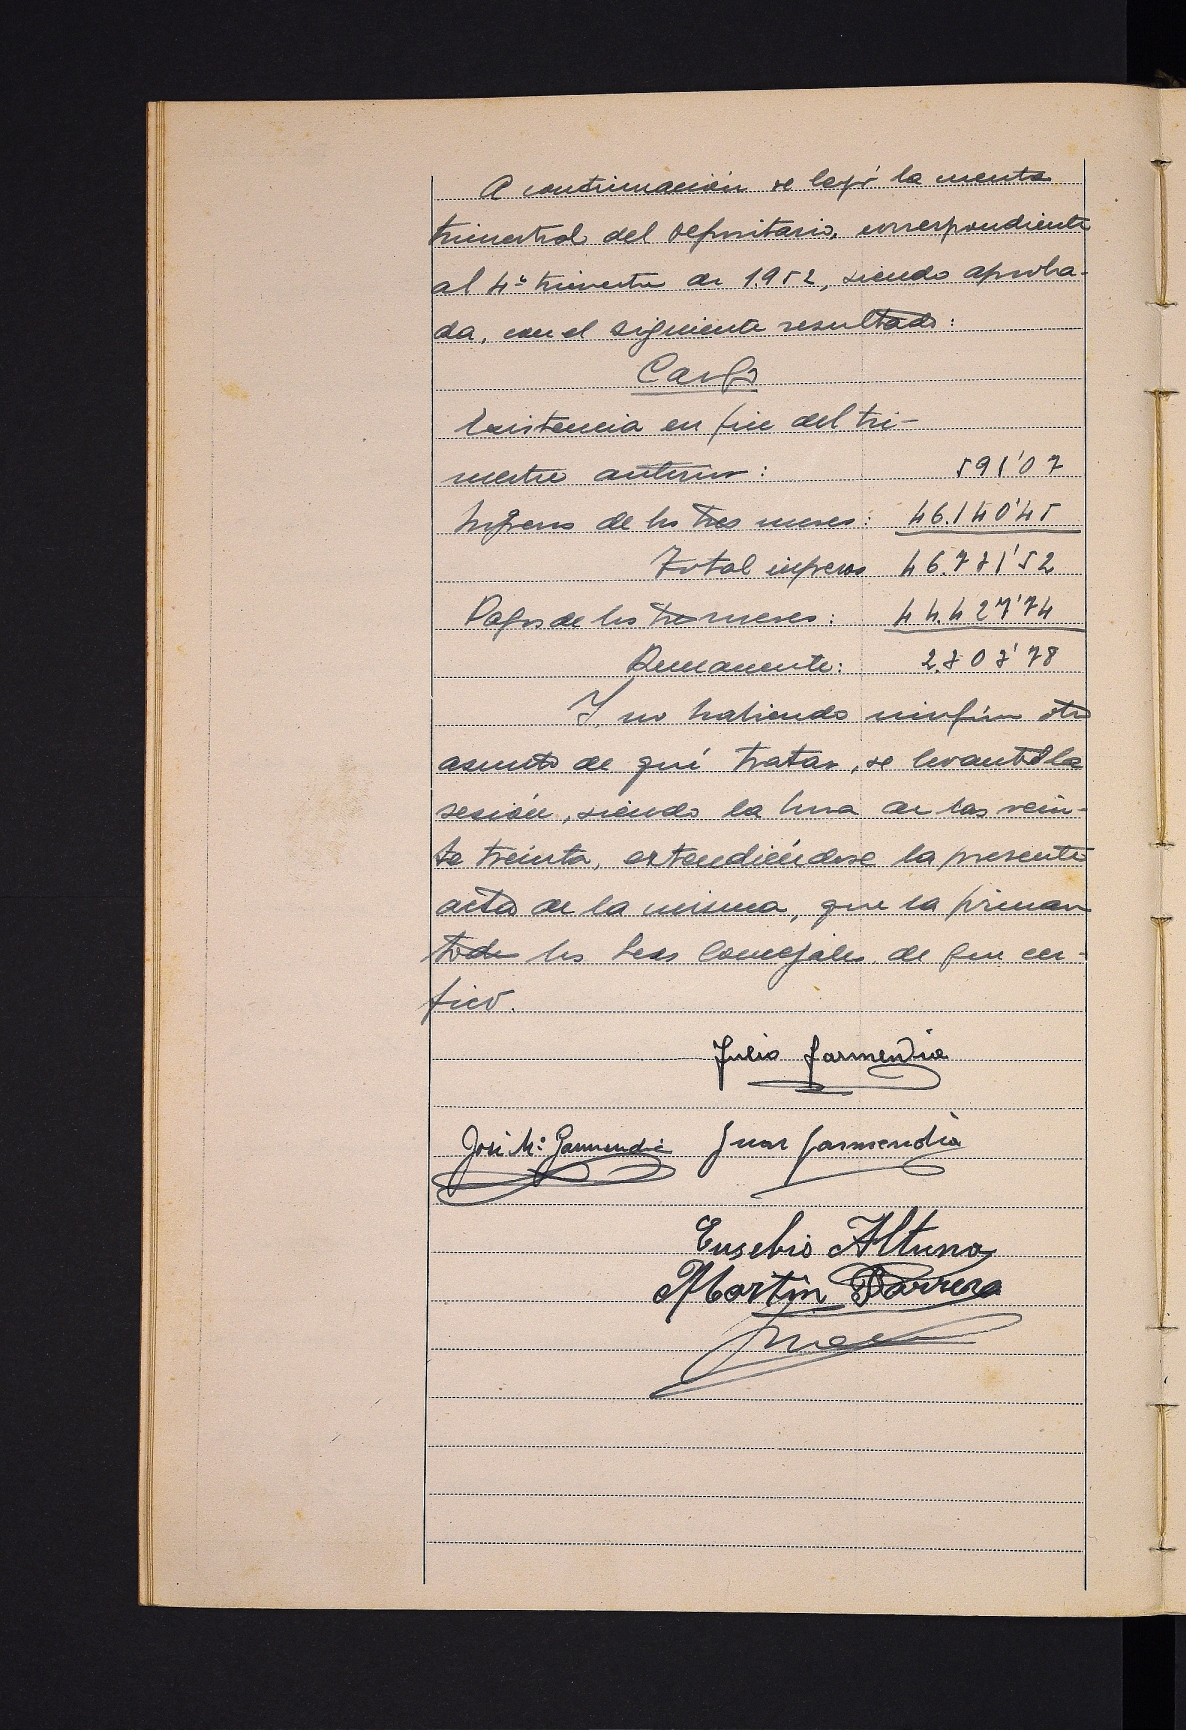 A continuación se leyó la cuenta
trimestral del Depositario, correspondiente
al 4º trimestre de 1.952, siendo aproba-
da, con el siguiente resultado:
Cargo
Existencia en fin del tri-
mestre anterior: 591'07
Ingresos de los tres meses: 46.140'45
Total ingresos 46.731'52
Pagos de los tres meses: 44.427'74
Remanente: 2.303'78
Y no habiendo ningún otro
asunto de qué tratar, se levantó la
sesión, siendo la hora de las vein-
te treinta, extendiéndose la presente
acta de la misma, que la firman
todos los Sres Concejales de que cer-
fico.
Julio Garmendia
José Mª Garmendia Juan Garmendia
Eusebio Altuna
Martin Barrera